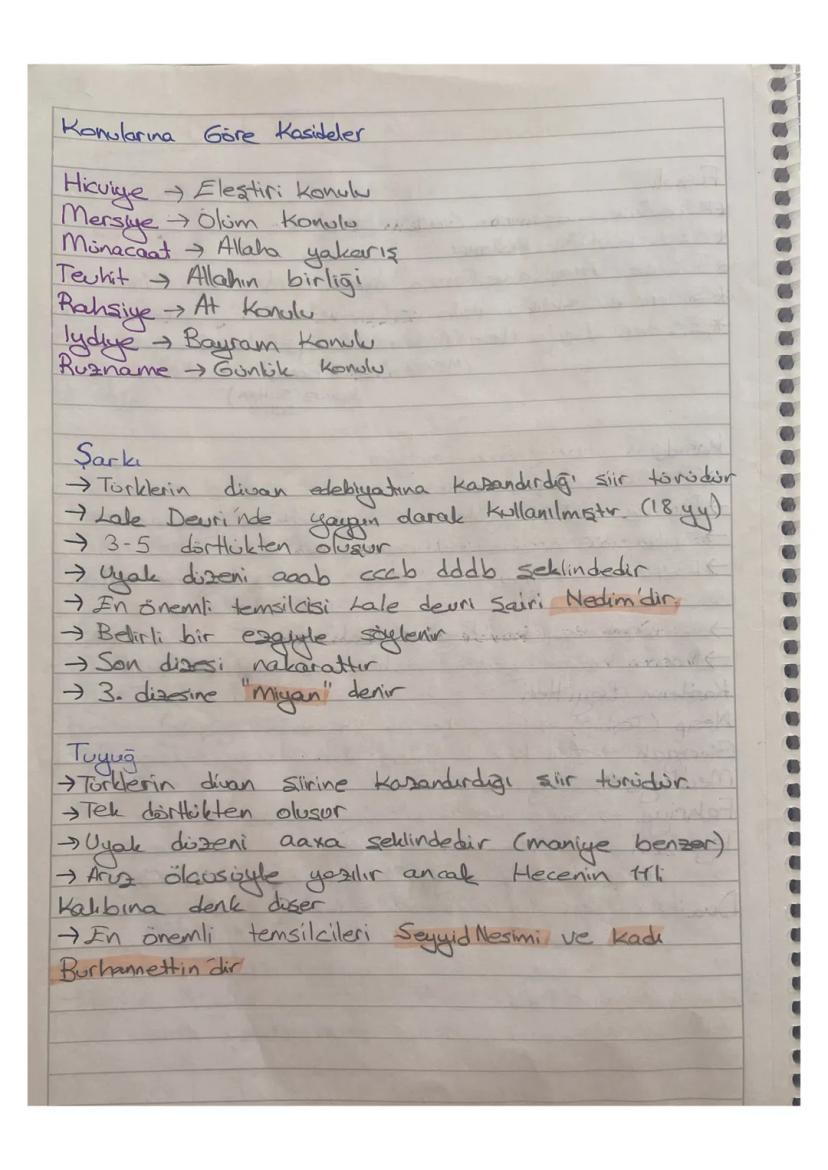 Konularına Göre Kasideler
Hicviye → Eleştiri konulu
Mersiye → Ölüm konulu
Münacaat → Allaha yakarış
Tevhit → Allahın birliği
Rahşiye → At konulu
Iydiye → Bayram konulu
Ruzname → Günlük konulu
Şarkı
→ Türklerin divan edebiyatına kazandırdığı şiir türüdür
→ Lale Devri'nde yaygın olarak kullanılmıştır. (18 yy)
→ 3-5 dörtlükten oluşur
→ Uyak düzeni aaab cccb dddb şeklindedir
→ En önemli temsilcisi Lale devri şairi Nedim'dir.
→ Belirli bir ezgiyle söylenir
→ Son dizesi nakarattır
→ 3. dizesine "miyan" denir
Tuyuğ
→ Türklerin divan şiirine kazandırdığı şiir türüdür.
→ Tek dörtlükten oluşur
→ Uyak düzeni aaxa şeklindedir (maniye benzer)
→ Aruz ölçüsüyle yazılır ancak Hecenin 11li
kalıbına denk düşer
→ En önemli temsilcileri Seyyid Nesimi ve Kadı
Burhannettin'dir